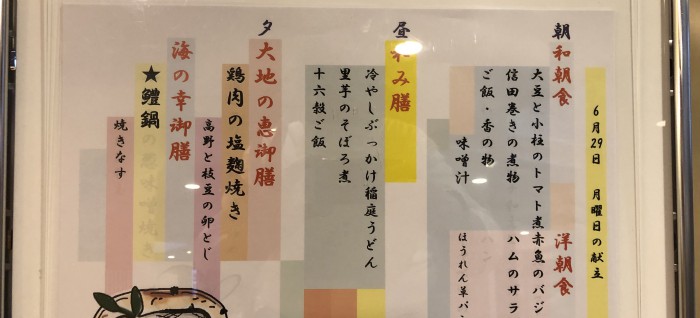 6月29日 月曜日の献立
朝 和朝食
大豆と小柱のトマト煮
信田巻きの煮物
ご飯・香の物
味噌汁
洋朝食
赤魚のバジ
ハムのサラ
パン
ほうれん草パン
昼 和み膳
冷やしぶっかけ稲庭うどん
里芋のそぼろ煮
十六穀ご飯
夕 大地の恵御膳
鶏肉の塩麹焼き
高野と枝豆の卵とじ
海の幸御膳
★鱧鍋
焼きなす